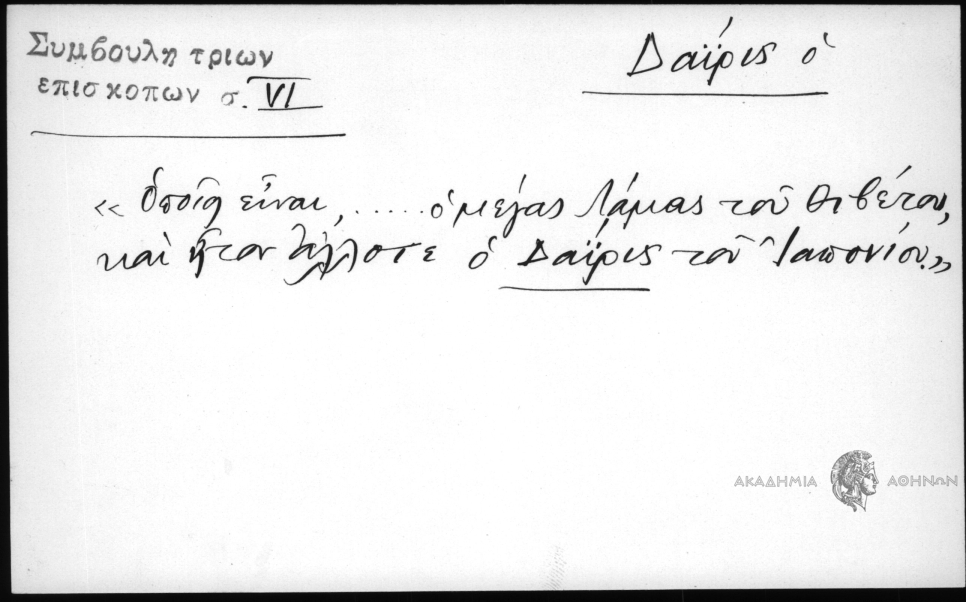 Συμβουλη τριων
επισκοπων σ. VI
Δαΐρις ὁ
« ὁποῖα εἶναι, ..... ὁ μέγας Λάμας τοῦ Θιβέτου,
καὶ ἦτον ἄλλοτε ὁ Δαΐρις τοῦ Ἰαπονίου.»
ΑΚΑΔΗΜΙΑ ΑΘΗΝΩΝ